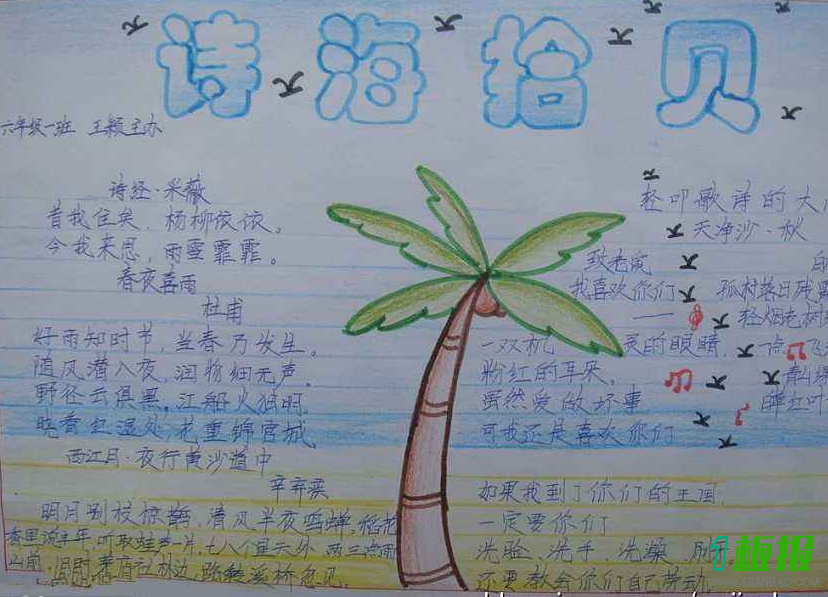 诗海拾贝
六年级一班 王颖主办
诗经·采薇
昔我住矣，杨柳依依。
今我来思，雨雪霏霏。
春夜喜雨
杜甫
好雨知时节，当春乃发生。
随风潜入夜，润物细无声。
野径云俱黑，江船火独明。
晓看红湿处，花重锦官城
西江月·夜行黄沙道中
辛弃疾
明月别枝惊鹊，清风半夜鸣蝉。稻花
香里说丰年，听取蛙声一片。七八个星天外 两三点雨
山前，旧时茅店社林边，路转溪桥忽见。
轻叩歌诗的大
天净沙·秋
孤村落日残
轻烟老树
一点飞
青山绿
红叶
致老鼠
我喜欢你们
一双机灵的眼睛，
粉红的耳朵。
虽然爱做坏事
可我还是喜欢你们
如果我到了你们的王国，
一定要你们
洗脸、洗手、洗澡、刷
还要教会你们自己劳动，
板报